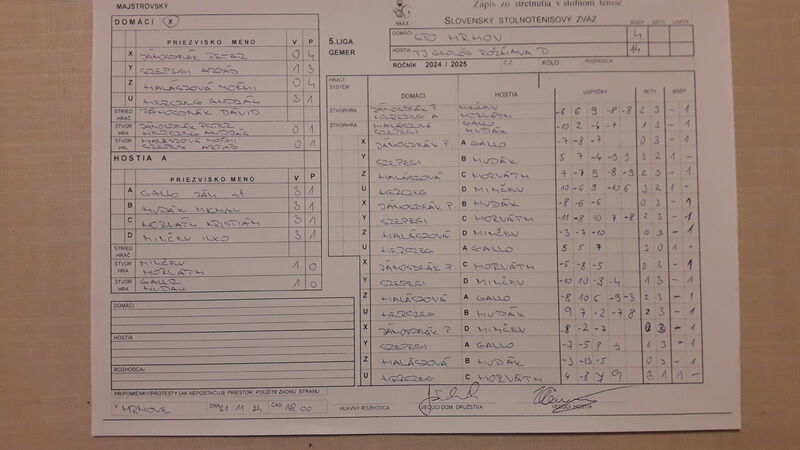 MAJSTROVSKÝ
DOMÁCI X
PRIEZVISKO MENO V P
X JÁNOSDEÁK PETER 0 4
Y SZEPESI ARPÁD 1 3
Z HALASZOVÁ NOÉMI 0 4
U HERCZEG ANDRÁS 3 1
STRIED HRÁČ JÁNOSDEÁK DAVID
ŠTVOR HRA JÁNOSDEÁK PETER HERCZEG ANDRÁS 0 1
ŠTVOR HRA HALASZOVÁ NOÉMI SZEPESI ARPÁD 0 1
HOSTIA A
PRIEZVISKO MENO V P
A GALLO JÁN st. 3 1
B HUDÁK MICHAL 3 1
C HORVÁTH KRISTIÁN 3 1
D MINČEV ILKO 3 1
STRIED HRÁČ
ŠTVOR HRA MINČEV HORVÁTH 1 0
ŠTVOR HRA GALLO HUDÁK 1 0
DOMÁCI
HOSTIA
ROZHODCA
PRIPOMIENKY/PROTESTY (AK NEPOSTAČUJE PRIESTOR, POUŽITE ZADNÚ STRANU
V HRHOVE DŇA 21 11. 24 ČAS 18.00
Zápis zo stretnutia v stolnom tenise
SSTZ SLOVENSKÝ STOLNOTENISOVÝ ZVÄZ
5.LIGA
GEMER
BODY SETY LOPTY
DOMÁCI STO HRHOV 4
HOSTIA TJ GEOLÓG ROŽŇAVA D 14
ROČNÍK 2024 / 2025 Č.Z. KOLO ROZHODCA
HRACÍ SYSTÉM DOMÁCI HOSTIA LOPTIČKY SETY BODY
ŠTVORHRA JÁNOSDEÁK P. HERCZEG A MINČEV HORVÁTH -8 6 9 -8 -8 2 3 - 1
ŠTVORHRA HALASZOVÁ SZEPESI GALLO HUDÁK -10 2 -4 -7 1 3 - 1
X JÁNOSDEÁK P. A GALLO -7 -8 -7 0 3 - 1
Y SZEPESI B HUDÁK 5 7 -4 -9 9 3 2 1 -
Z HALASZOVÁ C HORVÁTH 7 -7 9 -8 -9 2 3 - 1
U HERCZEG D MINČEV 10 -6 9 -10 6 3 2 1 -
X JÁNOSDEÁK P. B HUDÁK -8 -6 -6 0 3 - 1
Y SZEPESI C HORVÁTH -11 -8 10 7 -8 2 3 - 1
Z HALASZOVÁ D MINČEV -3 -7 -10 0 3 - 1
U HERCZEG A GALLO 5 5 7 3 0 1 -
X JÁNOSDEÁK P. C HORVÁTH -5 -8 -5 0 3 - 1
Y SZEPESI D MINČEV -10 10 -3 -4 1 3 - 1
Z HALASZOVÁ A GALLO -8 10 6 -9 -3 2 3 - 1
U HERCZEG B HUDÁK 9 7 -2 -7 8 2 3 - 1
X JÁNOSDEÁK P. D MINČEV -8 -2 -7 0 3 - 1
Y SZEPESI A GALLO -7 -5 8 9 1 3 - 1
Z HALASZOVÁ B HUDÁK -3 -13 -5 0 3 - 1
U HERCZEG C HORVÁTH 4 -8 7 9 3 1 1 -
HLAVNÝ ROZHODCA VEDÚCI DOM. DRUŽSTVA VEDÚCI HOSTIA